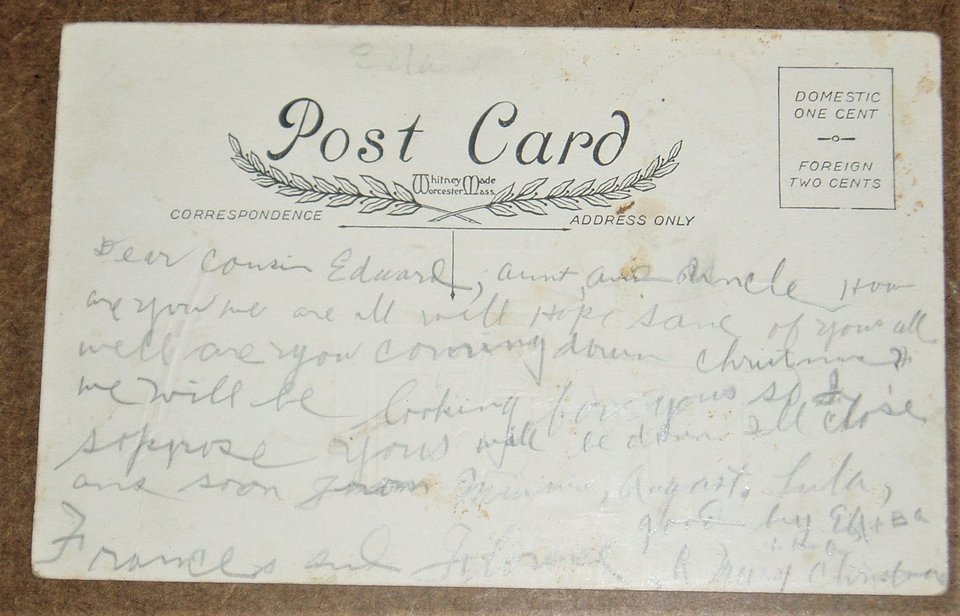 Post Card
Whitney Made
Worcester Mass.
DOMESTIC
ONE CENT
FOREIGN
TWO CENTS
CORRESPONDENCE
ADDRESS ONLY
Dear Cousin Edward, aunt, and Uncle How
are you we are all well Hope same of yous all
well are you coming down Christmas
we will be looking for yous so I
soppose yous will be down Ill close
and soon from August. Lula,
good by
Frances and Florence A Mery Christmas